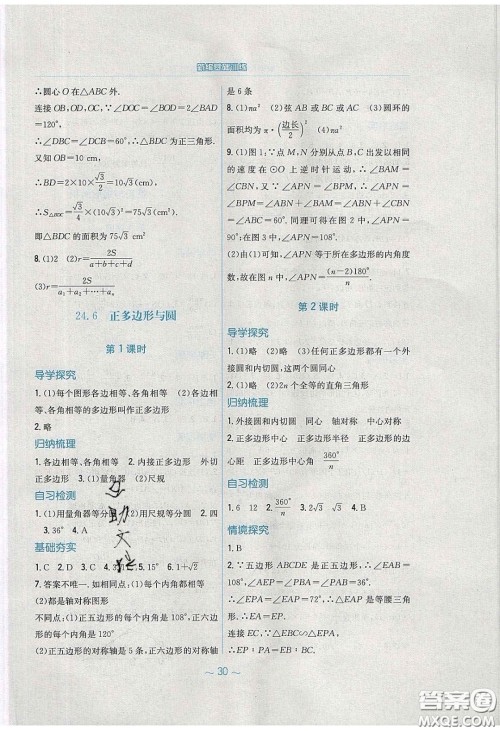 ∴圆心O在△ABC外.
连接OB,OD,OC,∴∠DOC=∠BOD=2∠BAD
=120°,
∴∠DBC=∠DCB=60°,∴△BDC为正三角形.
又∵OB=10 cm,
∴BD=2×10×√3/2=10√3(cm),
∴S△BDC=√3/4×(10√3)²=75√3(cm²).
即△BDC的面积为75√3 cm²
8.(1)2 (2)r=2S/(a+b+c+d)
(3)r=2S/(a₁+a₂+…+aₙ)
24.6 正多边形与圆
第1课时
导学探究
1.(1)每个图形各边相等、各角相等 (2)各边相
等、各角相等的多边形叫作正多边形
2.略
归纳梳理
1.各边相等、各角相等 2.内接正多边形 外切
正多边形 3.(1)量角器 (2)尺规
自习检测
1.(1)用量角器等分圆 (2)用尺规等分圆 2.四
3.36° 4.A
基础夯实
1.C 2.D 3.C 4.3 5.15° 6.1+√2
7.答案不唯一.如相同点:(1)每个内角都相等
(2)都是轴对称图形
不同点:(1)正五边形的每个内角是108°,正六边
形的每个内角是120°
(2)正五边形的对称轴是5条,正六边形的对称轴
是6条
8.(1)πa² (2)弦AB或BC或AC (3)圆环的
面积均为π·(边长/2)²
9.(1)图1:∵点M,N分别从点B,C开始以相同
的速度在⊙O上逆时针运动,∴∠BAM=
∠CBN,又∵∠APN=∠BPM,∴∠APN=
∠BPM=∠ABN+∠BAM=∠ABN+∠CBN
=∠ABC=60°.同理可得在图2中,∠APN=
90°;在图3中,∠APN=108°.
(2)由(1)可知,∠APN等于所在多边形的内角度
数,故在图n中,∠APN=(n-2)180°/n
第2课时
导学探究
1.(1)略 (2)略 (3)任何正多边形都有一个外接
圆和一个内切圆,这两个圆同心
2.(1)略 (2)2n个全等的直角三角形
归纳梳理
1.外接圆和内切圆 同心 轴对称 中心对称
2.正多边形中心 正多边形半径 正多边形的边
心距 正多边形中心角 360°/n
自习检测
1.B 2.360°/n 3.2√3 √3 4.A
情境探究
1.B
2.∵五边形ABCDE是正五边形,∴∠EAB=
108°,∠AEP=∠EAP=72°,∴△AEP为等腰三角
形.∴EA=EP.
连接EC,∵△EBC∽△PBA,
∴EP:PA=EB:BC.
～30～
答案圈
MXQE.COM